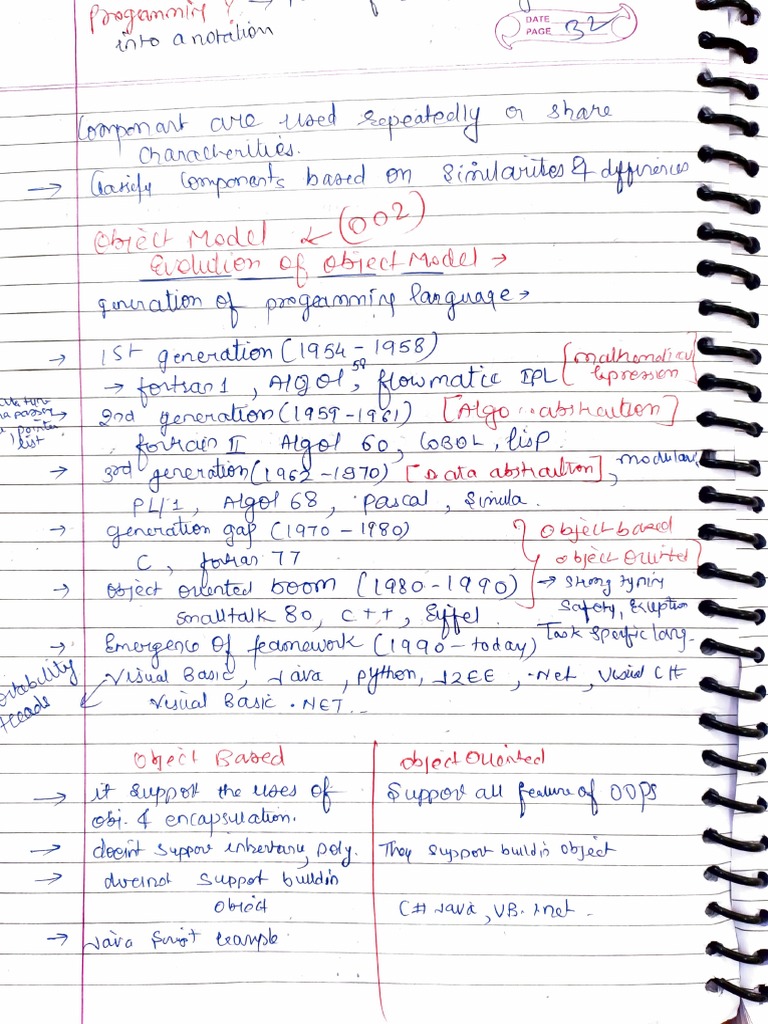 Progamming ? →
into a notation
DATE
PAGE 32
Componant are used repeatedly or share
characterities.
→ Classify components based on similarities & differences
Object Model ← (OO2)
Evolution of Object Model →
generation of progamming language →
→ 1st generation (1954 - 1958)
[mathematical expression]
→ fortran 1, Algol 58, flowmatic IPL
→ 2nd generation (1959 - 1961) [Algo. abstraction]
list
fortran II Algol 60, COBOL, lisp.
→ 3rd generation (1962 - 1970) [Data abstraction], modular
PL/1, Algol 68, Pascal, Simula.
→ generation gap (1970 - 1980)
object based
C, fortran 77
object oriented
→ object oriented boom (1980 - 1990) → strong typing
Smalltalk 80, C++, Eyffel.
Safety,
→ Emergence of framework (1990 - today)
Task specific lang.
Visual Basic, Java, Python, J2EE, .Net, Visual C#
Visual Basic .NET
Object Based
object Oriented
→ it support the uses of
obj. & encapsulation.
Support all feature of OOPS
→ doesnt support inheritance, poly.
They support buildin object
→ doesnot support buildin
object
C# Java, VB.
→ Java Script example